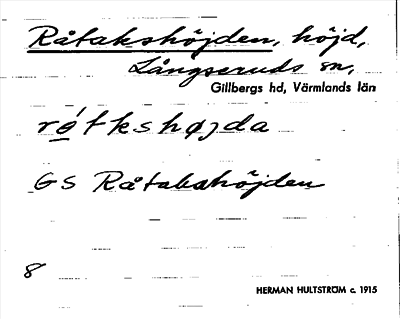 Råtakshöjden, höjd,
Långseruds sn,
Gillbergs hd, Värmlands län
rǿtkshøjda
GS Råtakshöjden
8
HERMAN HULTSTRÖM c. 1915